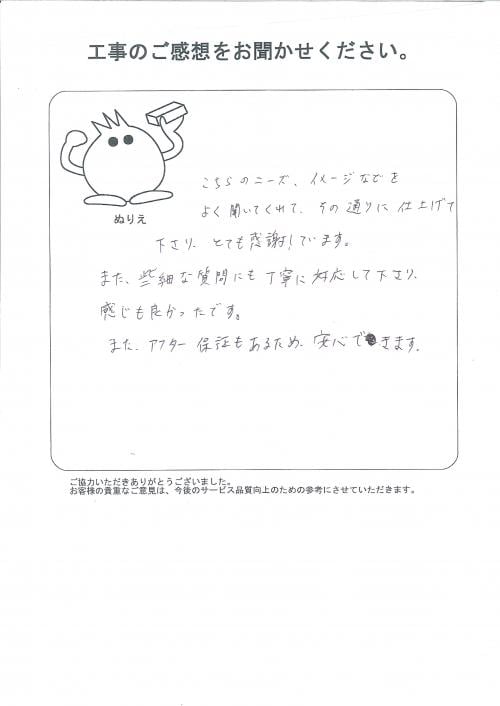 工事のご感想をお聞かせください。
ぬりえ
こちらのニーズ、イメージなどを
よく聞いてくれて、その通りに仕上げて
下さり、とても感謝しています。
また、些細な質問にも丁寧に対応して下さり、
感じも良かったです。
また、アフター保証もあるため、安心できます。
ご協力いただきありがとうございました。
お客様の貴重なご意見は、今後のサービス品質向上のための参考にさせていただきます。